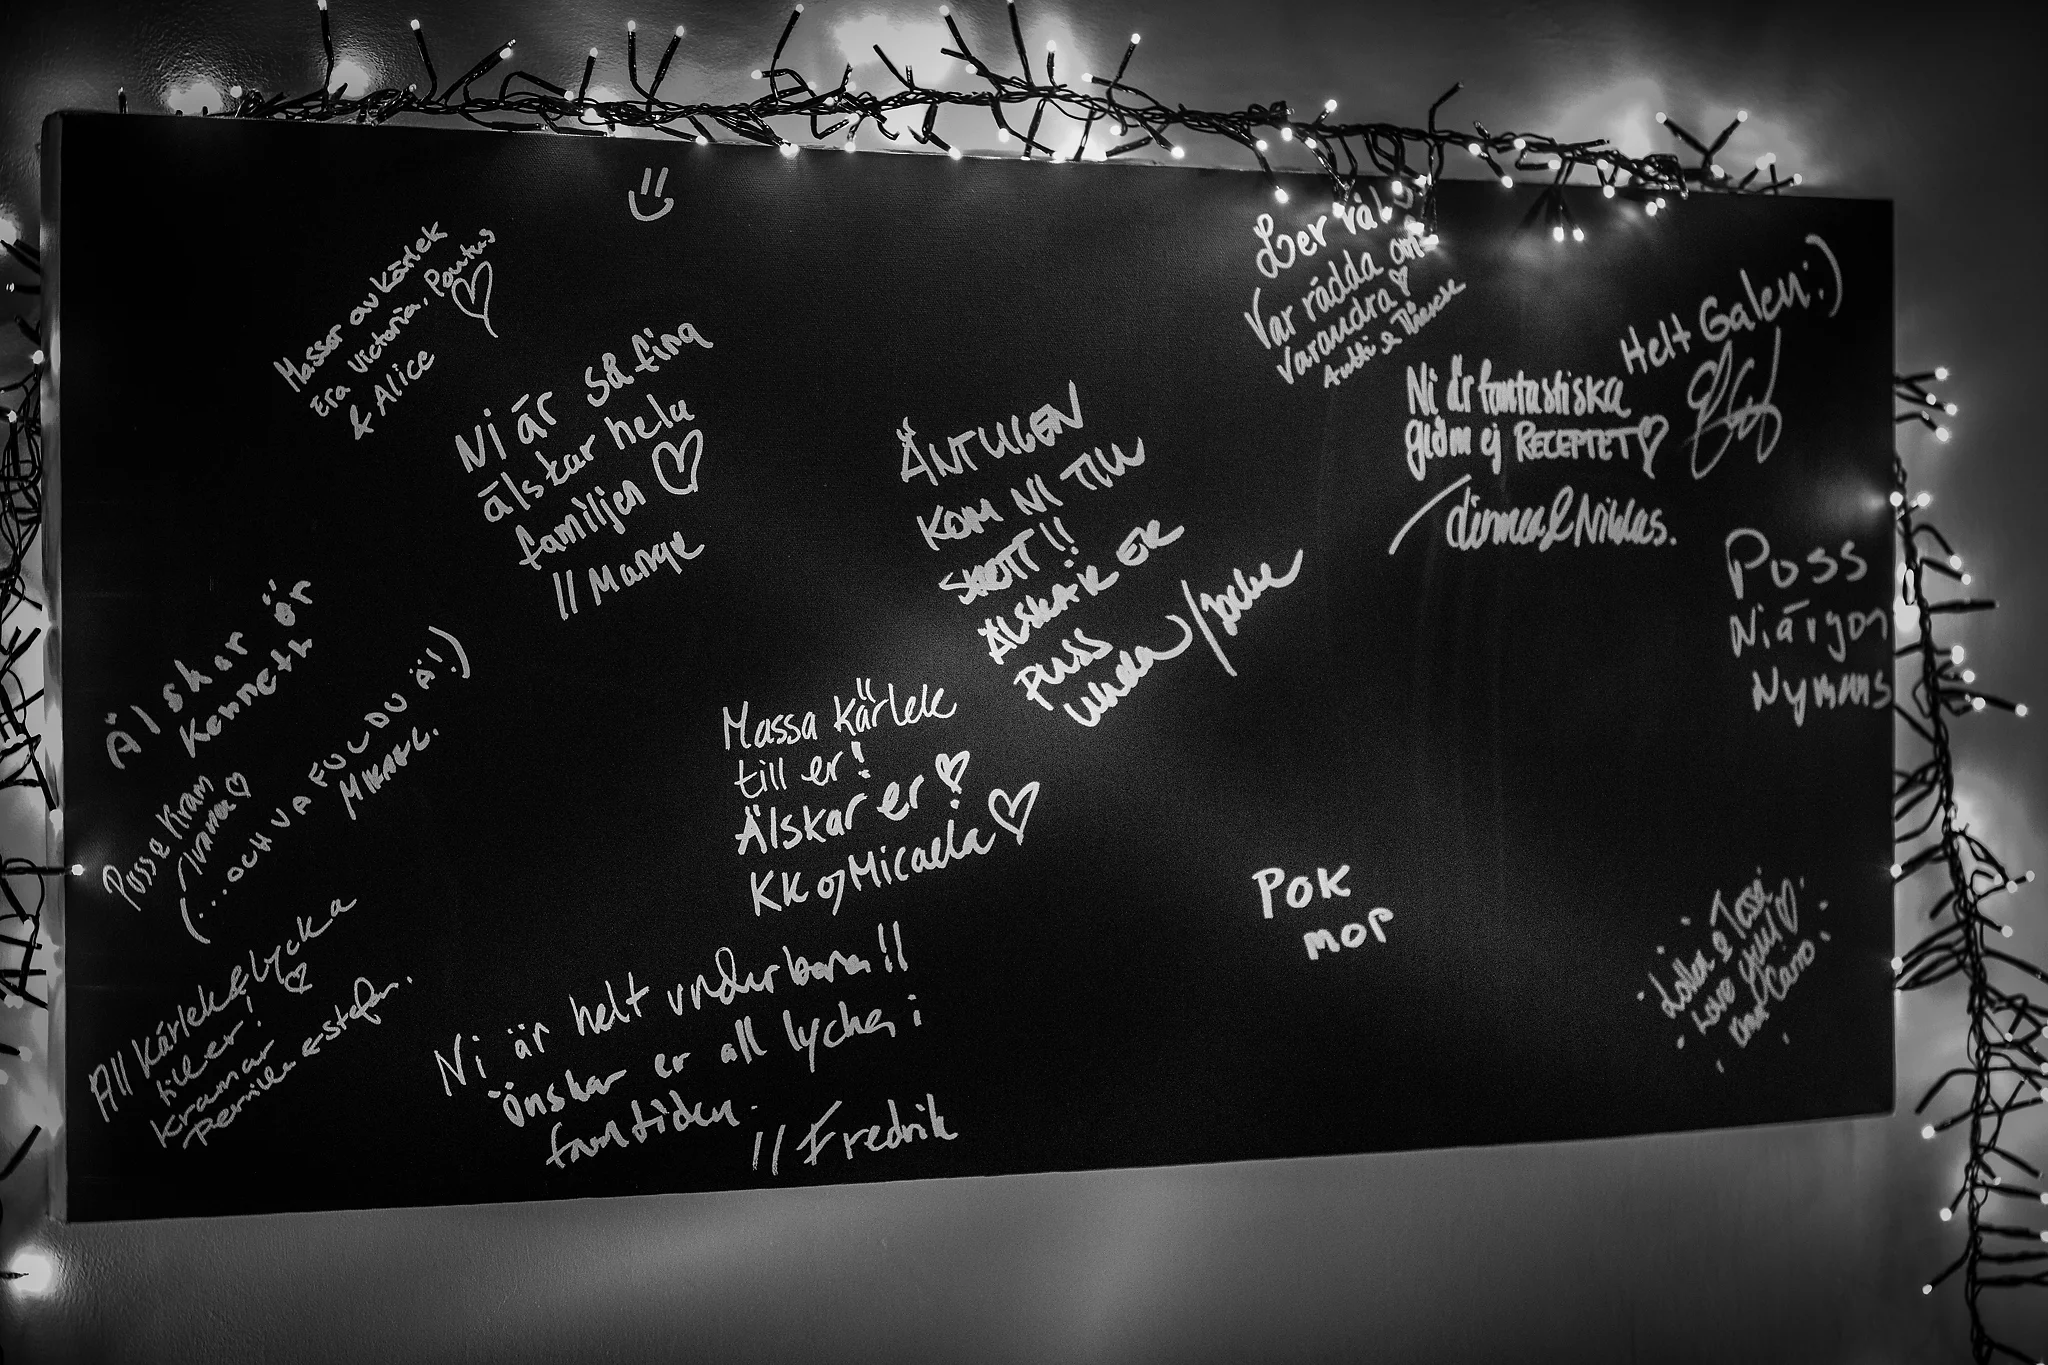 Massor av kärlek
Era Victoria, Pontus
& Alice
Ni är så fina
älskar hela
familjen
// Mange
ÄNTLIGEN
KOM NI TILL
SKOTT!!
ÄLSKAR ER
PUSS
Ler väl
Var rädda om
varandra
Helt Galen :)
Ni är fantastiska
glöm ej RECEPTET
& Niklas.
Poss
Ni är jon
Nymans
Älskar ör
Kenneth
Posse Kram
(...OCH VA FUL DU Ä!)
MIKAEL.
All kärlek & lycka
till er!
kramar
Pernilla & Stefan.
Massa kärlek
till er!
Älskar er
KK o Micaela
Ni är helt underbara!!
önskar er all lycka i
framtiden.
// Fredrik
POK
MOP
Love you!
Carro